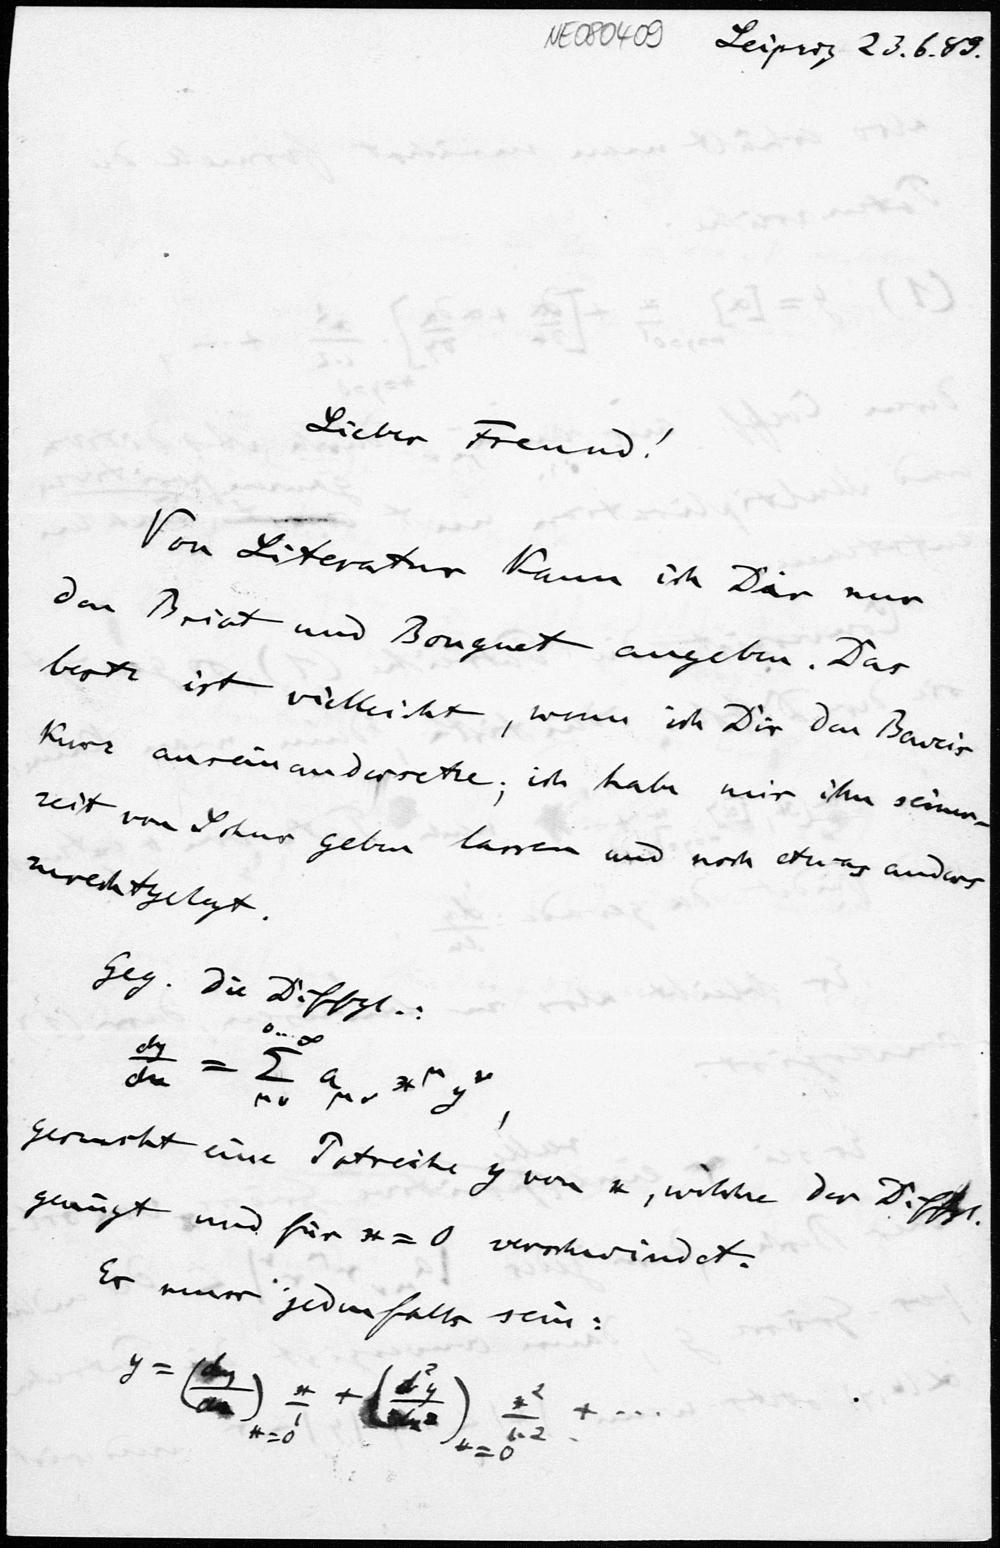 NE080409
Leipzig 23.6.89.
Lieber Freund!
Von Literatur kann ich Dir nur
den Briot und Bouquet angeben. Das
beste ist vielleicht, wenn ich Dir den Beweis
kurz auseinandersetze; ich habe mir ihn seiner-
zeit von geben lassen und noch etwas anders
zurechtgelegt.
Geg. die Diffgl.:
dy/dx = Σ_{μν}^{0...∞} a_{μν} x^μ y^ν,
gesucht eine Potreihe y von x, welche der Diffgl.
genügt und für x = 0 verschwindet.
Es muss jedenfalls sein:
y = (dy/dx)_{x=0} x/1 + (d²y/dx²)_{x=0} x²/1·2 + ....